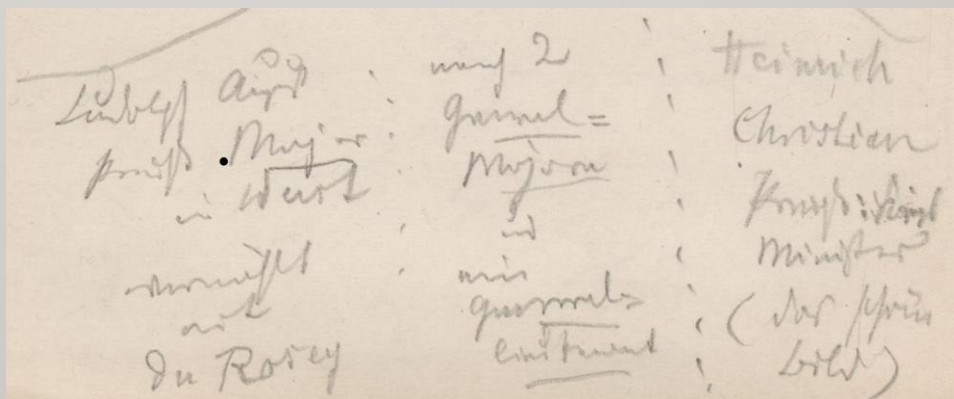 Ludolph August
preuß. Major
in Werst
vermählt
mit
Du Rosey
noch 2
General=
Majore
und
ein
General=
lieutenant
Heinrich
Christian
Preuß:
Minister
(das schöne
Bild)